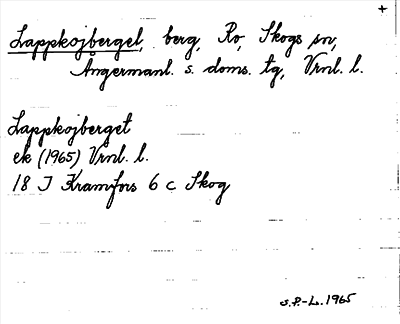 +
Lappkojberget, berg, Ro, Skogs sn,
Ångermanl. s. doms. tg, Vrnl. l.
Lappkojberget
ek (1965) Vrnl. l.
18 J Kramfors 6 c Skog
S.P.-L. 1965